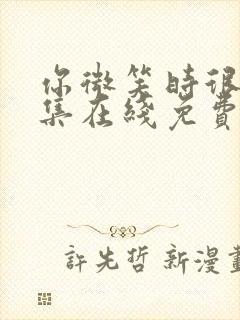 你微笑時很
集在綫免費
許先哲新漫畫